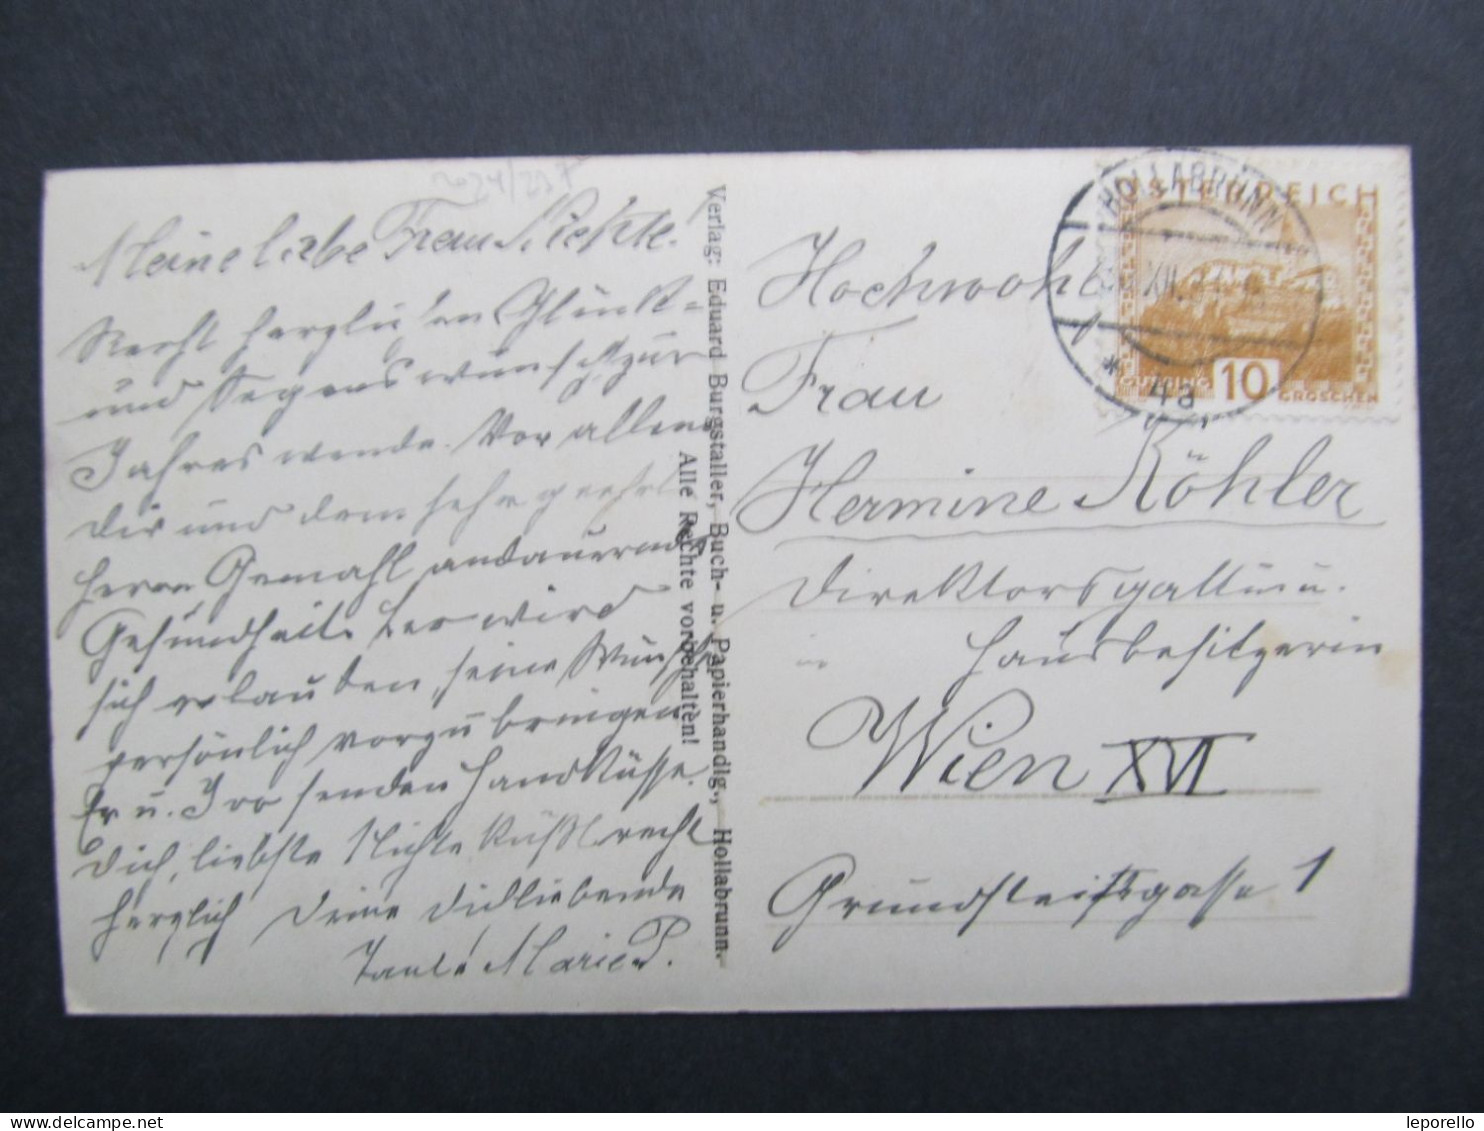 Meine liebe Frau Nichte!
Recht herzlichen Glück-
und Segenswunsch zur
Jahreswende. Vor allem
Dir und dem sehr geehrten
Herrn Gemahl andauernde
Gesundheit. Der wird
sich erlauben, seine Wünsche
persönlich vorzubringen
Er u. Ivo senden Handküsse.
Dich, liebste Nichte küßt recht
herzlich Deine Dichliebende
Tante Marie P.
Verlag: Eduard Burgstaller, Buch- u. Papierhandlg., Hollabrunn.
Alle Rechte vorbehalten!
HOLLABRUNN
XII.
* 4a
ÖSTERREICH
GÜSSING 10 GROSCHEN
Hochwohl
Frau
Hermine Köhler
Direktorsgattin u.
Hausbesitzerin
in
Wien XVI
Grundsteingasse 1
leporello